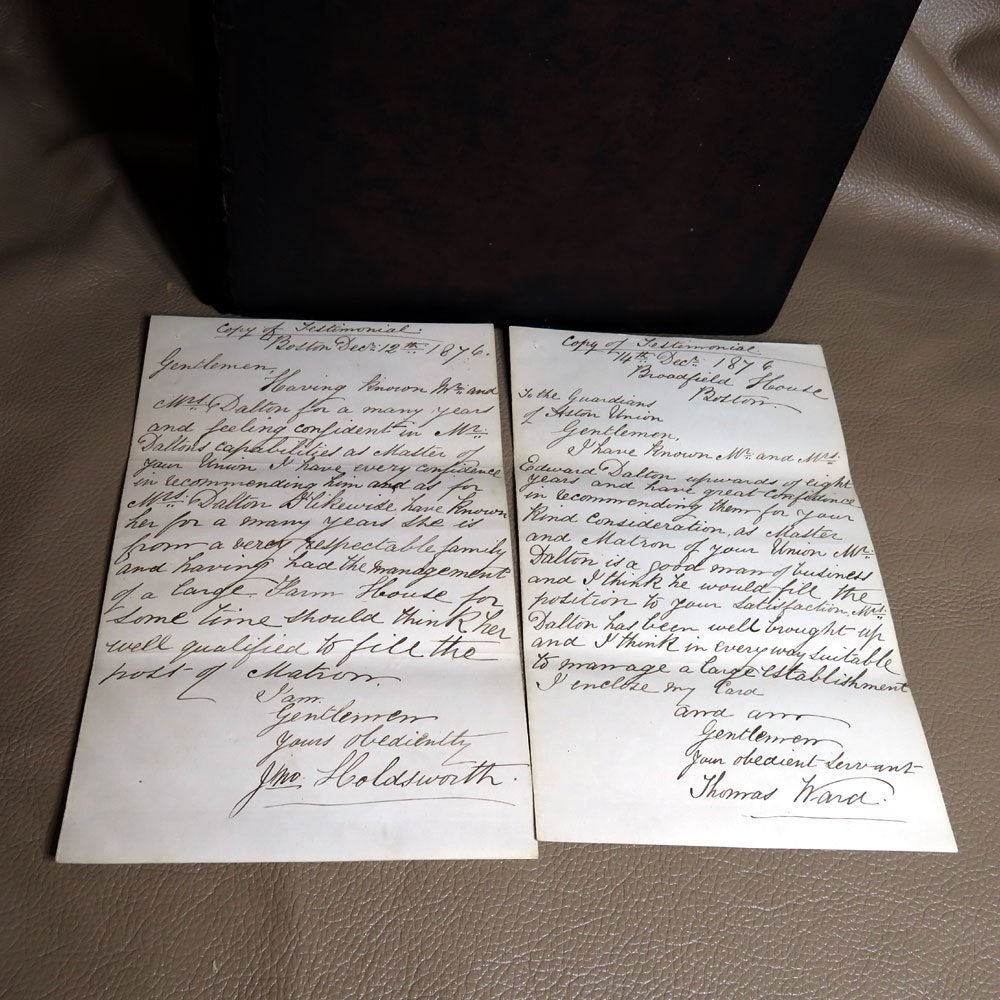 Copy of Testimonial.
Boston Decr. 12th 1876.
Gentlemen,
Having known Mr. and
Mrs. Dalton for a many years
and feeling confident in Mr.
Daltons capabilities as Master of
your Union I have every confidence
in recommending him and as for
Mrs. Dalton I likewise have known
her for a many years she is
from a very respectable family
and having had the management
of a large Farm House for
some time should think her
well qualified to fill the
post of Matron.
I am.
Gentlemen
yours obediently
Jno. Holdsworth.
Copy of Testimonial.
14th Decr. 1876
Broadfield House
Boston.
To the Guardians
of Aston Union
Gentlemen,
I have known Mr. and Mrs.
Edward Dalton upwards of eight
years and have great confidence
in recommending them for your
kind consideration, as Master
and Matron of your Union Mr.
Dalton is a good man of business
and I think he would fill the
position to your satisfaction, Mrs.
Dalton has been well brought up
and I think in every way suitable
to manage a large establishment
I enclose my Card
and am
Gentlemen
your obedient servant
Thomas Ward.